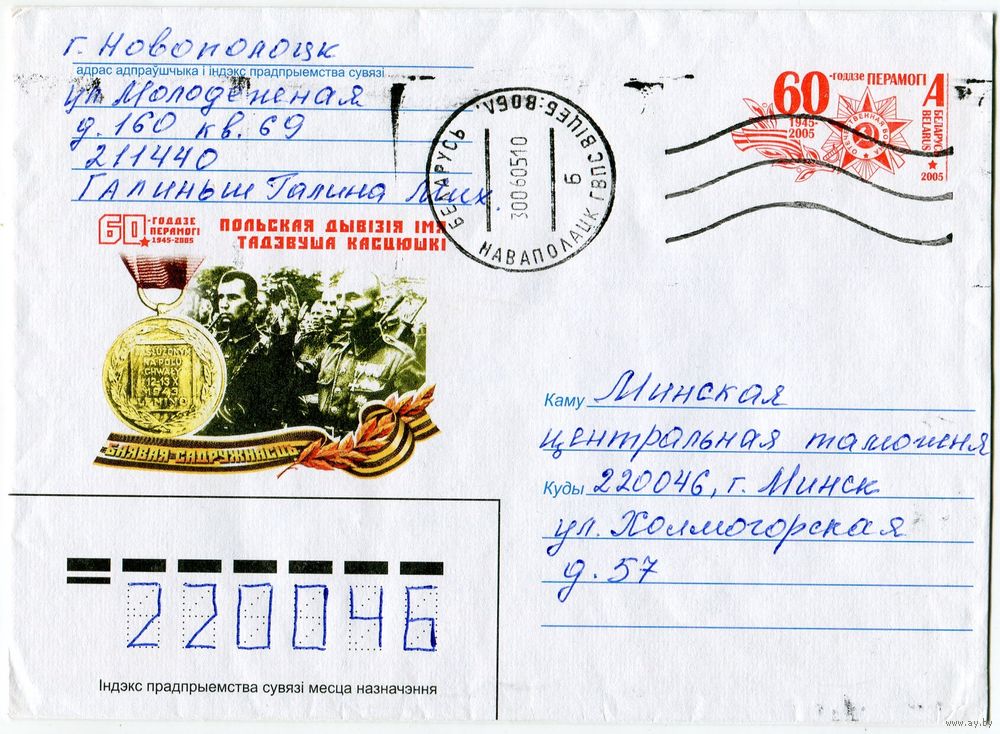 г. Новополоцк
адрас адпраўшчыка і індэкс прадпрыемства сувязі
ул Молодёжная
д. 160 кв. 69
211440
Галиньш Галина Мих.
60-годдзе
ПЕРАМОГІ
1945-2005
ПОЛЬСКАЯ ДЫВІЗІЯ ІМЯ
ТАДЭВУША КАСЦЮШКІ
ZASŁUŻONYM
NA POLU
CHWAŁY
12-13 X
1943
LENINO
БАЯВАЯ САДРУЖНАСЦЬ
БЕЛАРУСЬ
ВІЦЕБ: ВОБЛ.
НАВАПОЛАЦК ГВПС
30060510
Б
60-годдзе ПЕРАМОГІ
1945-
2005
ОТЕЧЕСТВЕННАЯ ВОЙНА
А
БЕЛАРУСЬ
BELARUS
2005
Каму Минская
центральная таможеня
Куды 220046, г. Минск
ул. Холмогорская
д. 57
220046
Індэкс прадпрыемства сувязі месца назначэння
www.ay.by